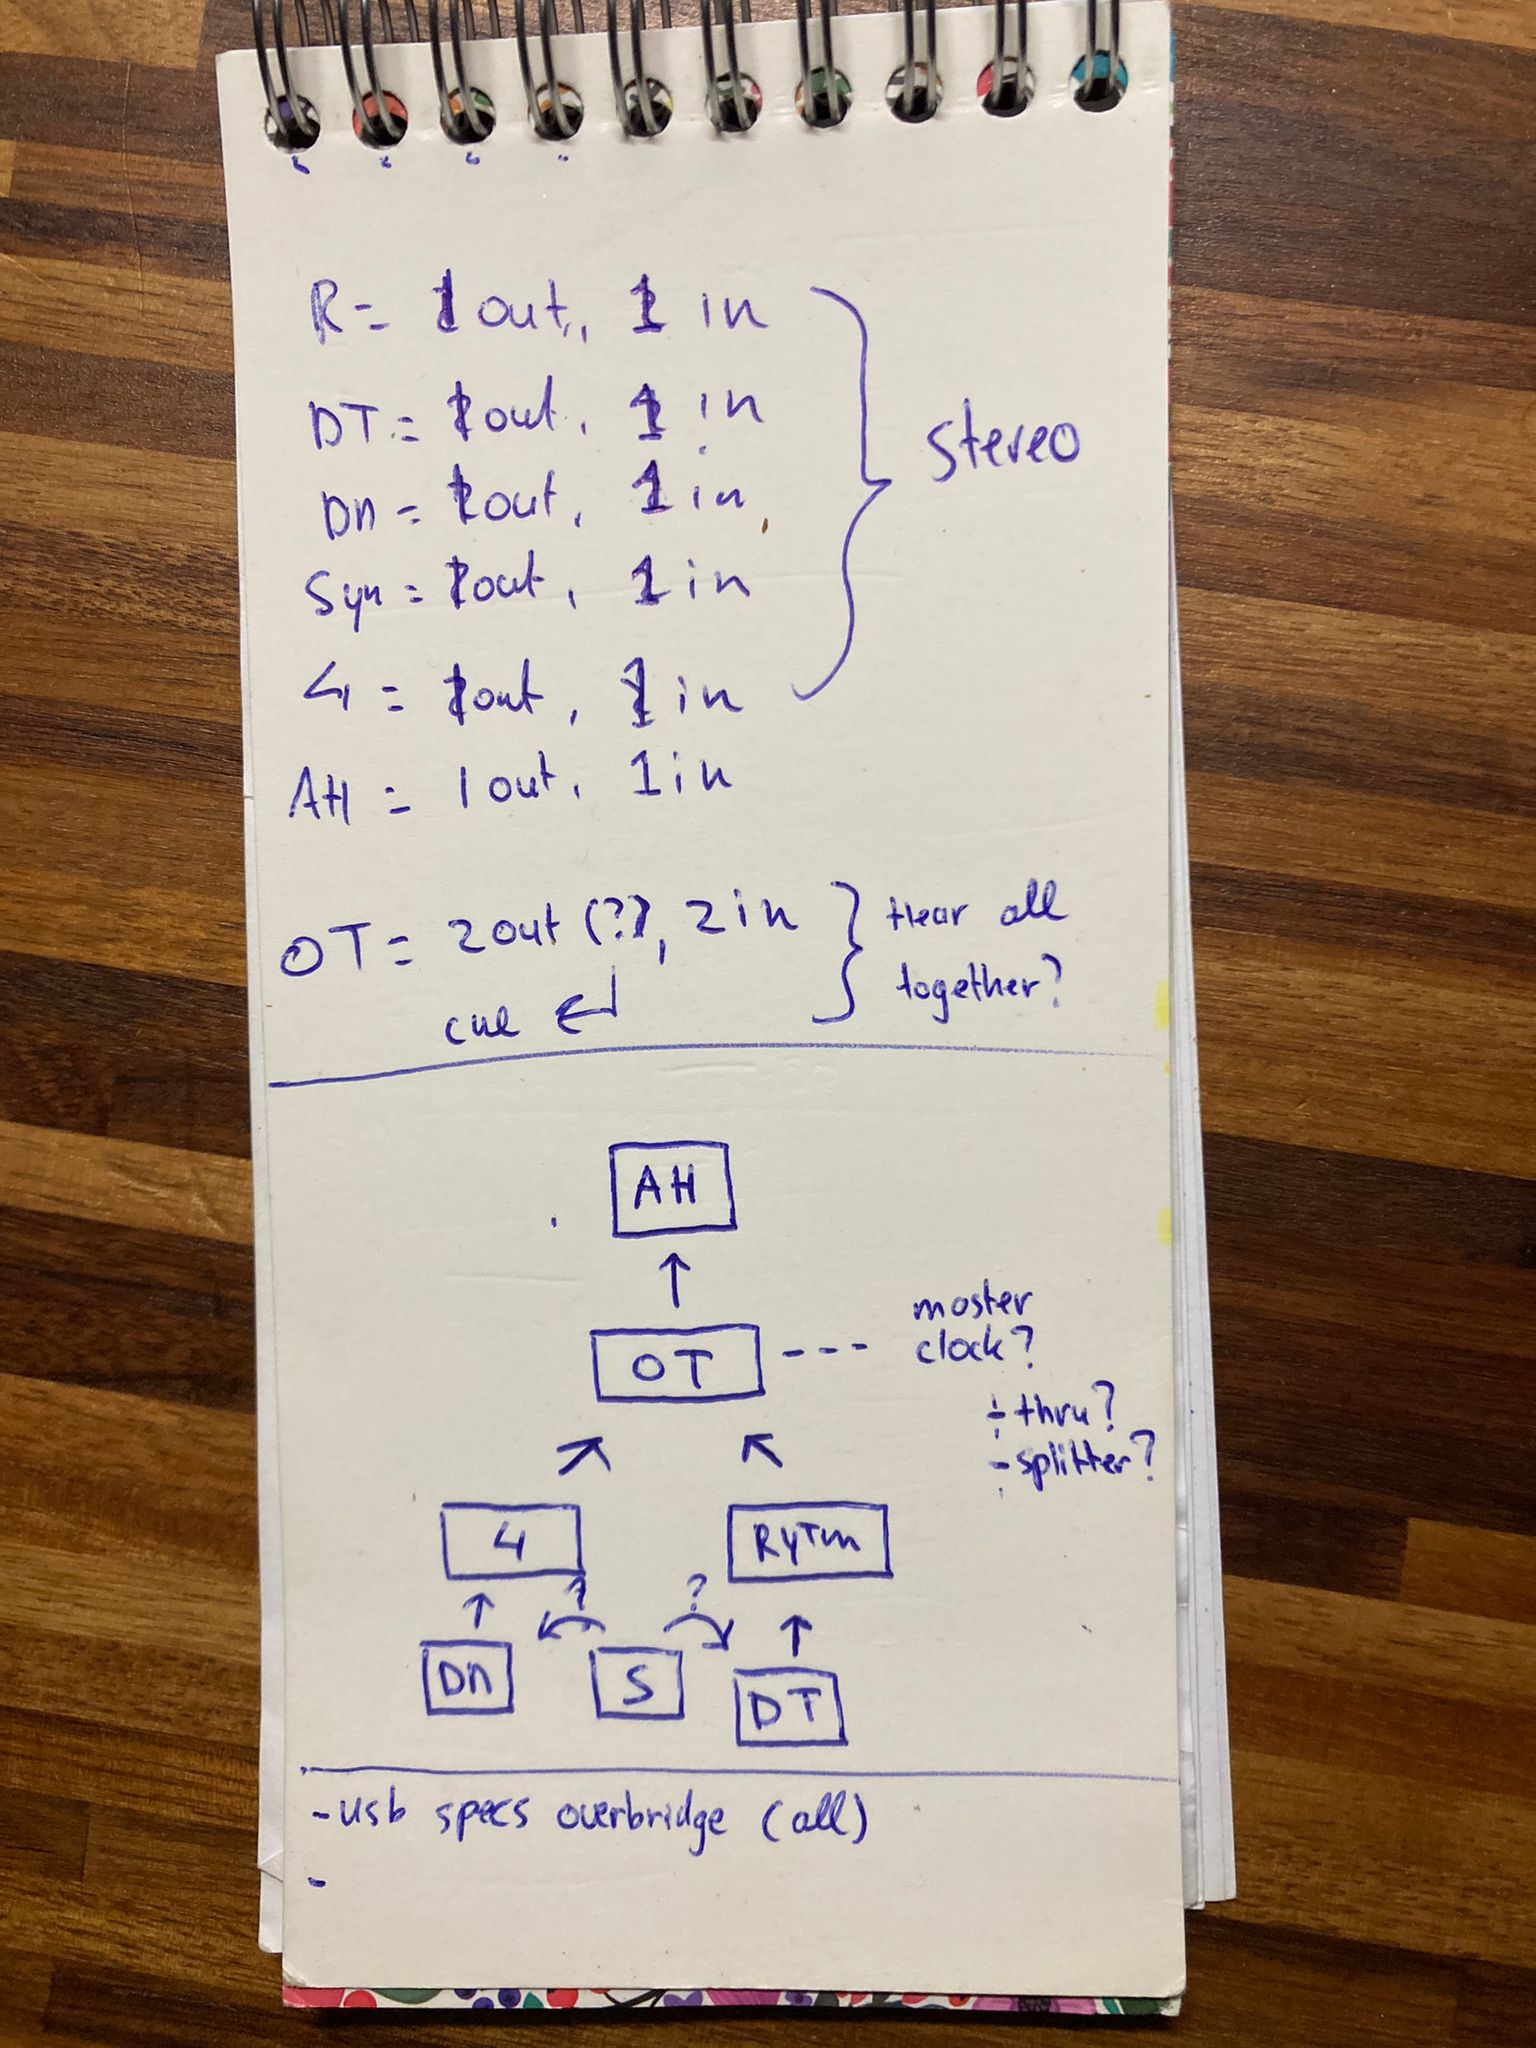 R = 1 out, 1 in
DT = 1 out, 1 in
Dn = 1 out, 1 in
Syn = 1 out, 1 in
4 = 1 out, 1 in
stereo
AH = 1 out, 1 in
OT = 2 out (?), 2 in
cue
Hear all
together?
AH
OT
master
clock?
- thru?
- splitter?
4
Rytm
? ?
Dn
S
DT
- usb specs overbridge (all)
-